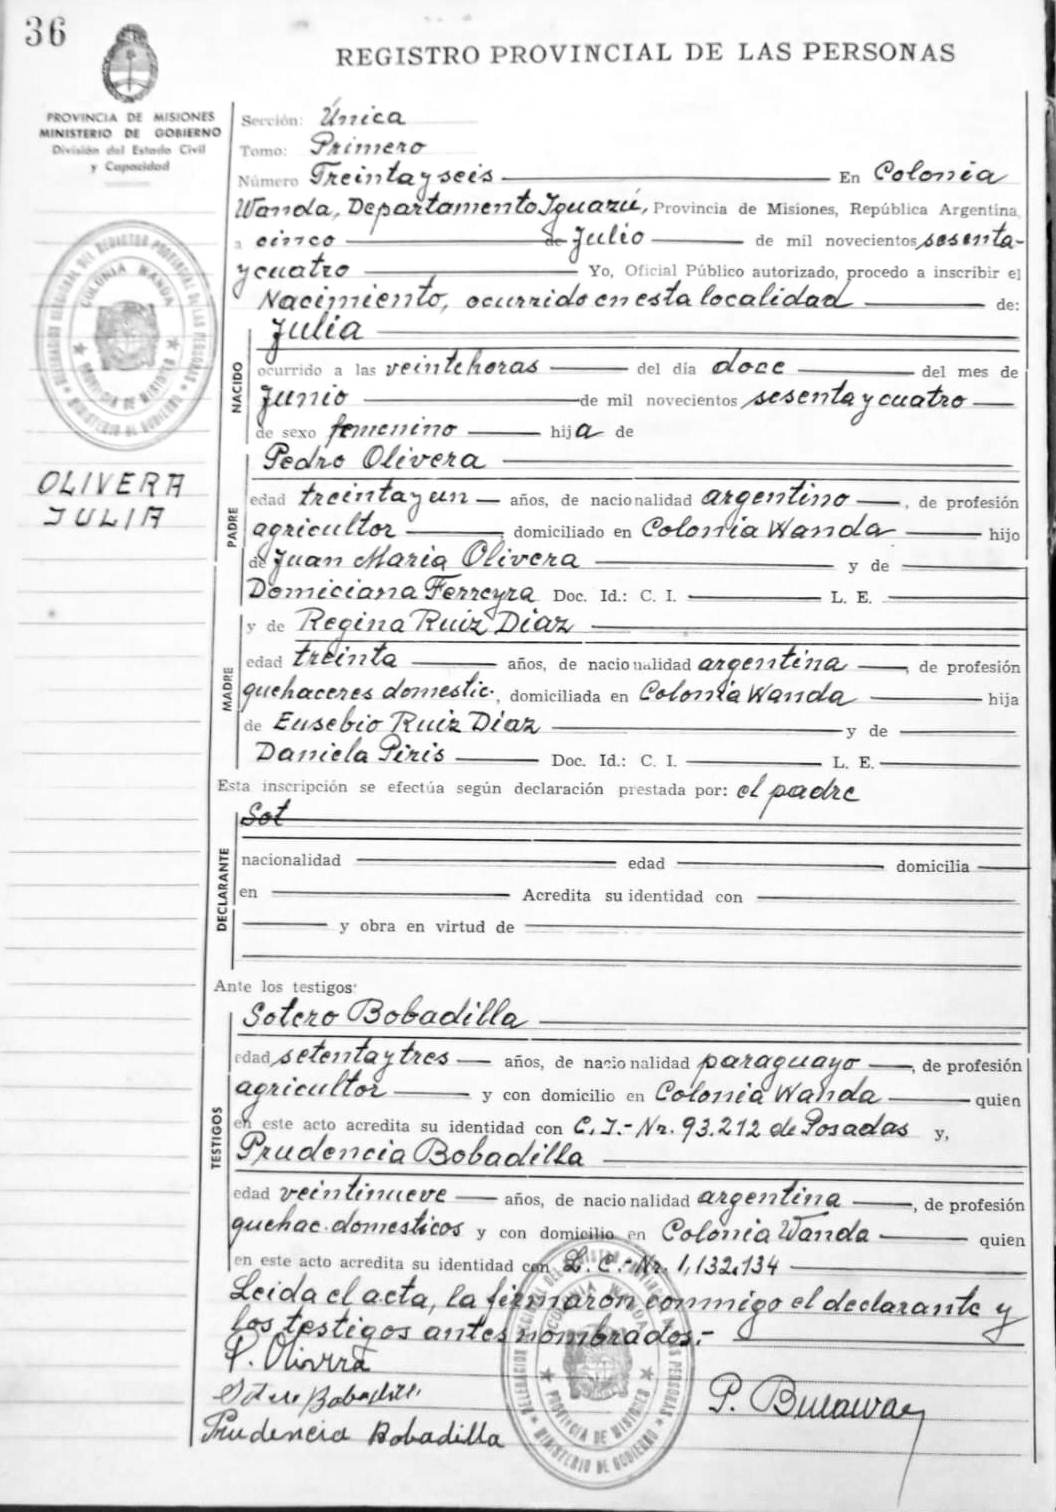 36
REGISTRO PROVINCIAL DE LAS PERSONAS
PROVINCIA DE MISIONES
MINISTERIO DE GOBIERNO
División del Estado Civil
y Capacidad
Sección: Única
Tomo: Primero
Número Treinta y seis En Colonia
Wanda, Departamento Iguazú, Provincia de Misiones, República Argentina,
a cinco de Julio de mil novecientos sesenta-
y cuatro Yo, Oficial Público autorizado, procedo a inscribir el
Nacimiento, ocurrido en esta localidad de:
NACIDO
Julia
ocurrido a las veinte horas del día doce del mes de
Junio de mil novecientos sesenta y cuatro
de sexo femenino hija de
OLIVERA
JULIA
PADRE
Pedro Olivera
edad treinta y un años, de nacionalidad argentino, de profesión
agricultor domiciliado en Colonia Wanda hijo
de Juan Maria Olivera y de
Domiciana Ferreyra Doc. Id.: C. I. L. E.
MADRE
y de Regina Ruiz Diaz
edad treinta años, de nacionalidad argentina, de profesión
quehaceres domestic., domiciliada en Colonia Wanda hija
de Eusebio Ruiz Diaz y de
Daniela Piris Doc. Id.: C. I. L. E.
Esta inscripción se efectúa según declaración prestada por: el padre
DECLARANTE
Sot
nacionalidad edad domicilia
en Acredita su identidad con
y obra en virtud de
Ante los testigos:
TESTIGOS
Sotero Bobadilla
edad setenta y tres años, de nacionalidad paraguayo, de profesión
agricultor y con domicilio en Colonia Wanda quien
en este acto acredita su identidad con C. I.- Nr. 93.212 de Posadas y,
Prudencia Bobadilla
edad veintinueve años, de nacionalidad argentina, de profesión
quehac. domesticos y con domicilio en Colonia Wanda quien
en este acto acredita su identidad con L. C.- Nr. 1,132.134
Leida el acta, la firmaron conmigo el declarante y
los testigos antes nombrados.-
P. Olivera
Sotero Bobadilla
Prudencia Bobadilla
COLONIA WANDA
PROVINCIA DE MISIONES
MINISTERIO DE GOBIERNO